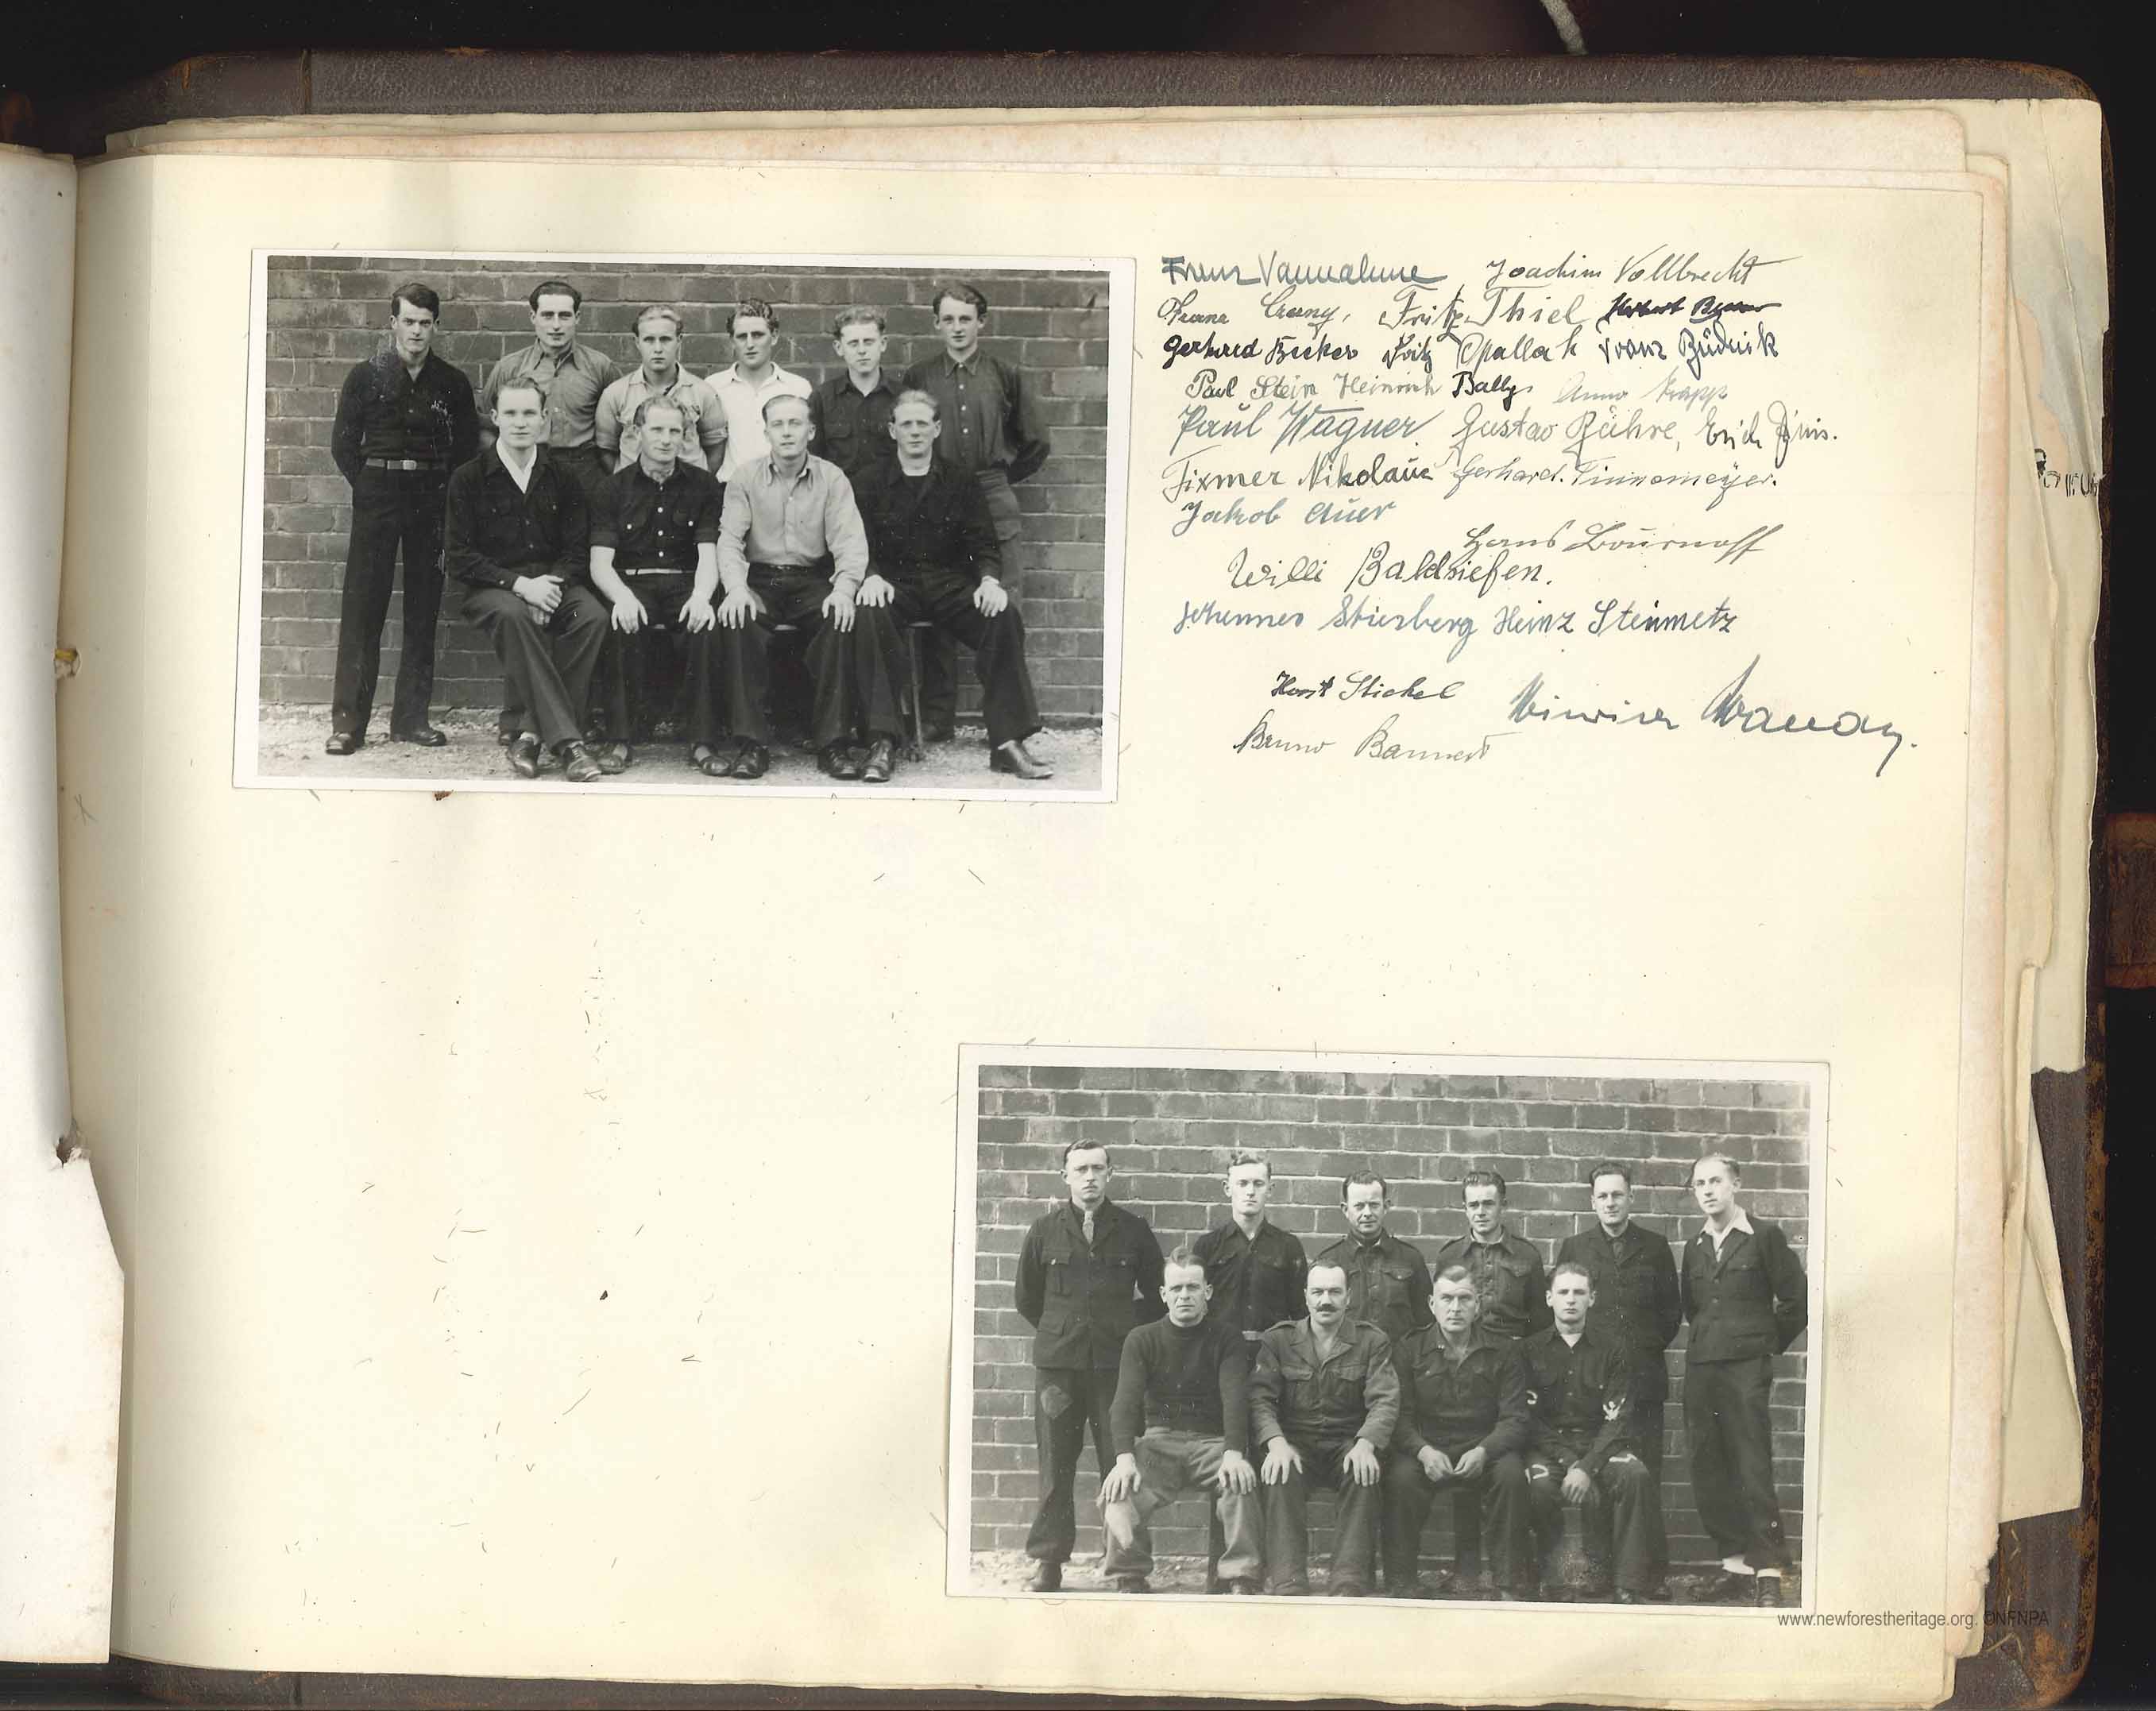 Franz Vannahme Joachim Vollbrecht
Franz Fritz Thiel Herbert
Gerhard Becker Fritz Opallach Franz Büdnik
Paul Stein Heinrich Ballys
Paul Wagner. Gustav Bühre, Erich
Fixmer Nikolaus Gerhard. Tinnemeÿer.
Jakob Auer
Willi Baldsiefen.
Johannes Striesberg Heinz Steinmetz
Horst Stickel
Bruno Bannert
www.newforestheritage.org. ©NFNPA